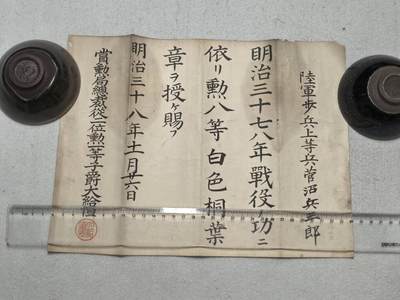 陸軍歩兵上等兵菅沼兵三郎
明治三十七八年戰役ノ功ニ
依リ勲八等白色桐葉
章ヲ授ケ賜フ
明治三十八年十一月廿六日
賞勲局總裁從二位勲一等子爵大給恒